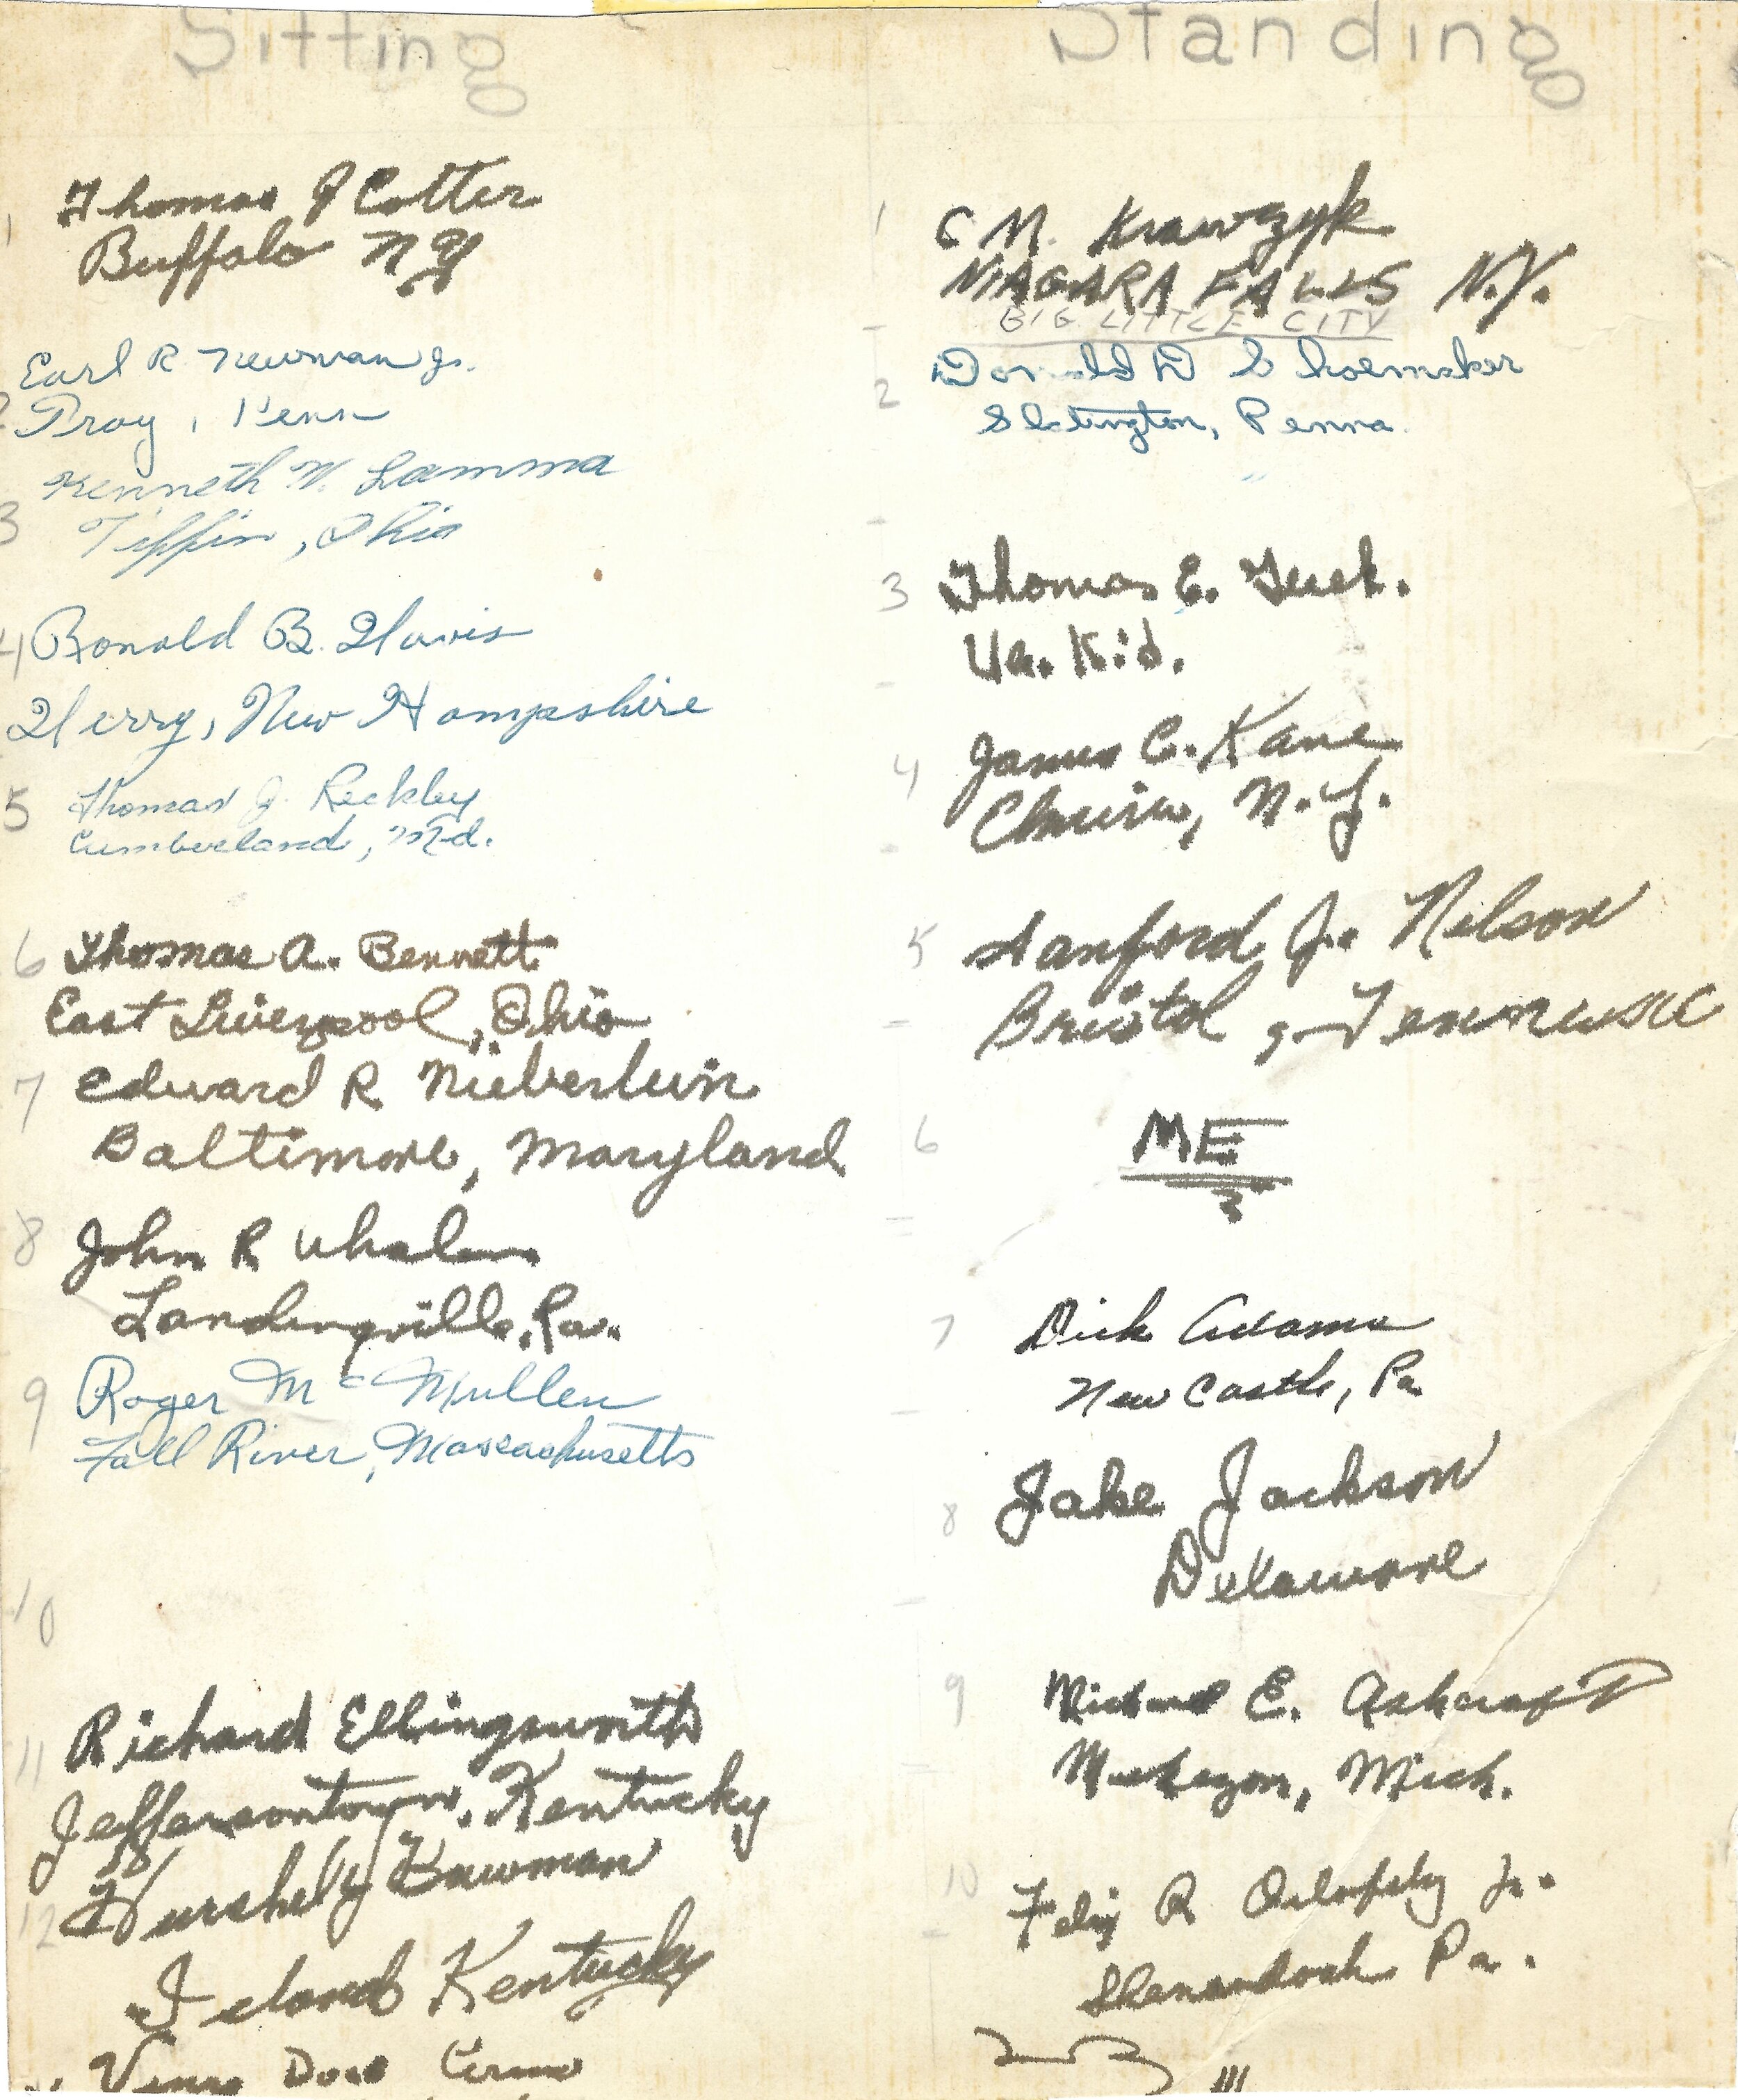 Sitting
1 Thomas J Cotter
Buffalo NY
Earl R. Newman Jr.
2 Troy, Penn
Kenneth W. Lamma
3 Tiffin, Ohio
4 Ronald B. Davis
Derry, New Hampshire
5 Thomas J. Reckley
Cumberland, Md.
6 Thomas A. Bennett
East Liverpool, Ohio
7 Edward R Nieberlein
Baltimore, Maryland
8 John R Whalen
Landingville, Pa.
9 Roger Mc Mullen
Fall River, Massachusetts
10
11 Richard Ellingsworth
Jeffersontown, Kentucky
12 Hurshel Bowman
Island Kentucky
Standing
1 C M. Krawczyk
NIAGARA FALLS N.Y.
BIG LITTLE CITY
2 Donald D Shoemaker
Slatington, Penna.
3 Thomas E.
Va. Kid.
4 James C. Kane
N.Y.
5 Sanford Jr. Nelson
Bristol, Tennessee
6 ME
7 Dick Adams
New Castle, Pa
8 Jake Jackson
Delaware
9 Michael E. Ashcraft
Muskegon, Mich.
10 Felix R Jr.
Shenandoah Pa.